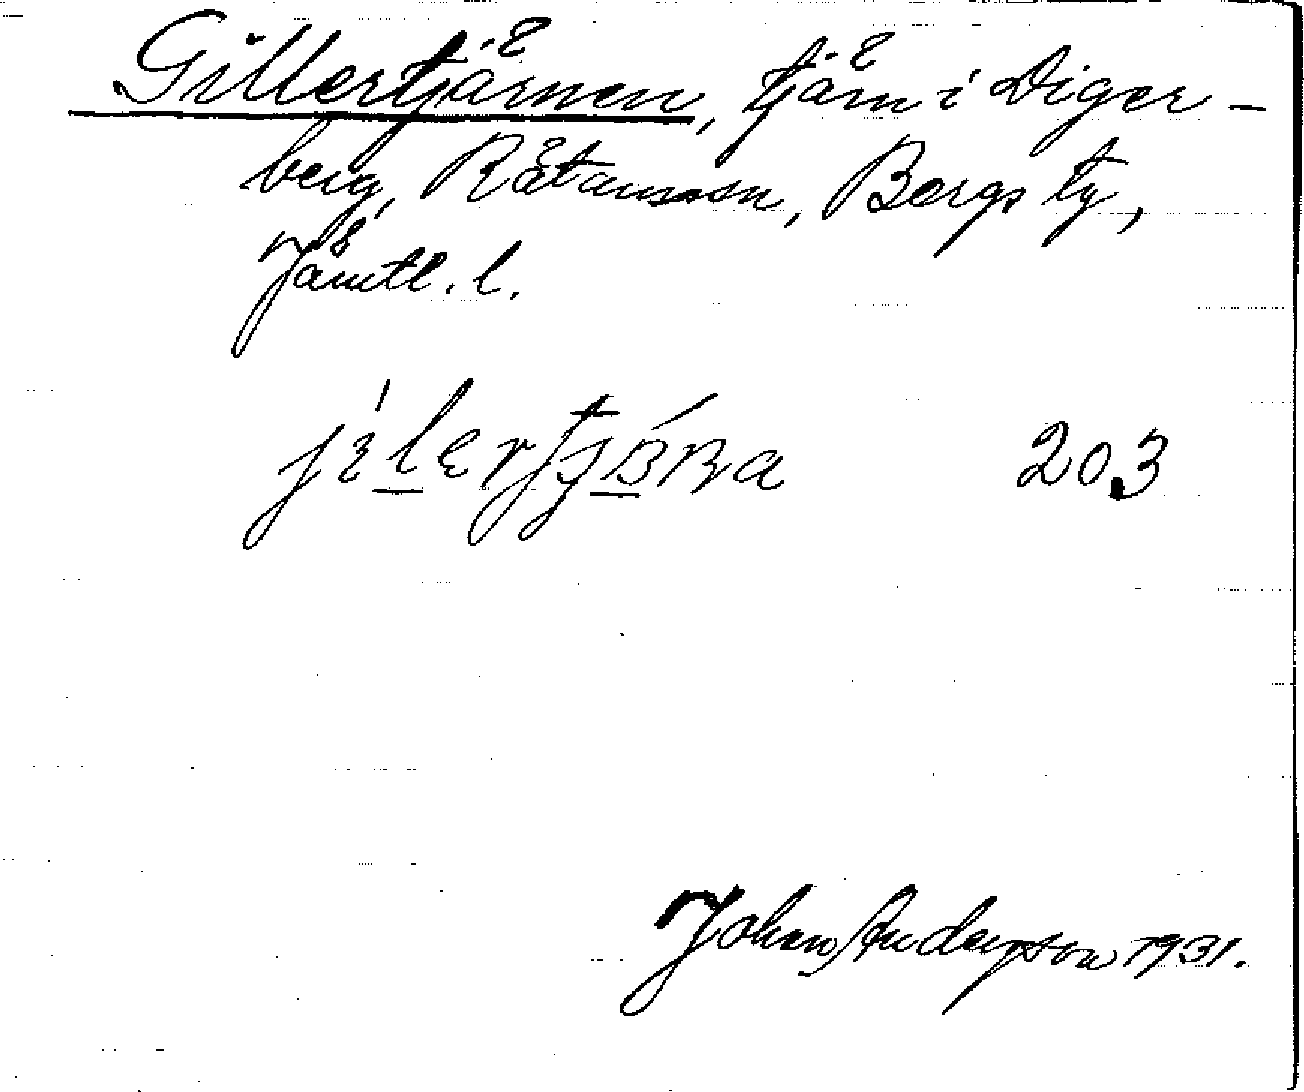 Gillertjärnen, tjärn i Diger-
berg, Rätansosn, Bergs tg,
Jämtl. l.
203
Johan Anderson 1931.